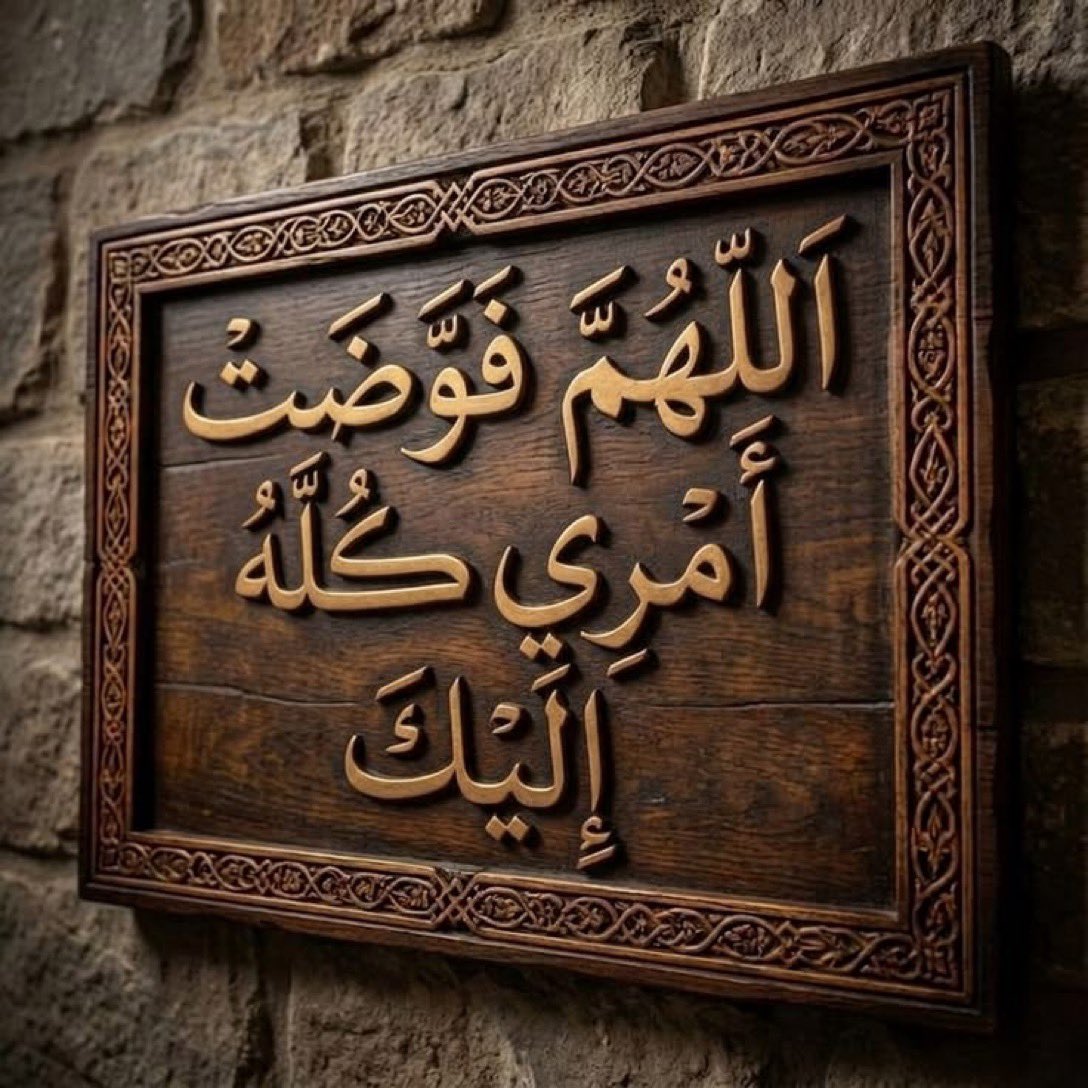 اَللّٰهُمَّ فَوَّضَتْ
أَمْرِي كُلَّهُ
إِلَيْكَ